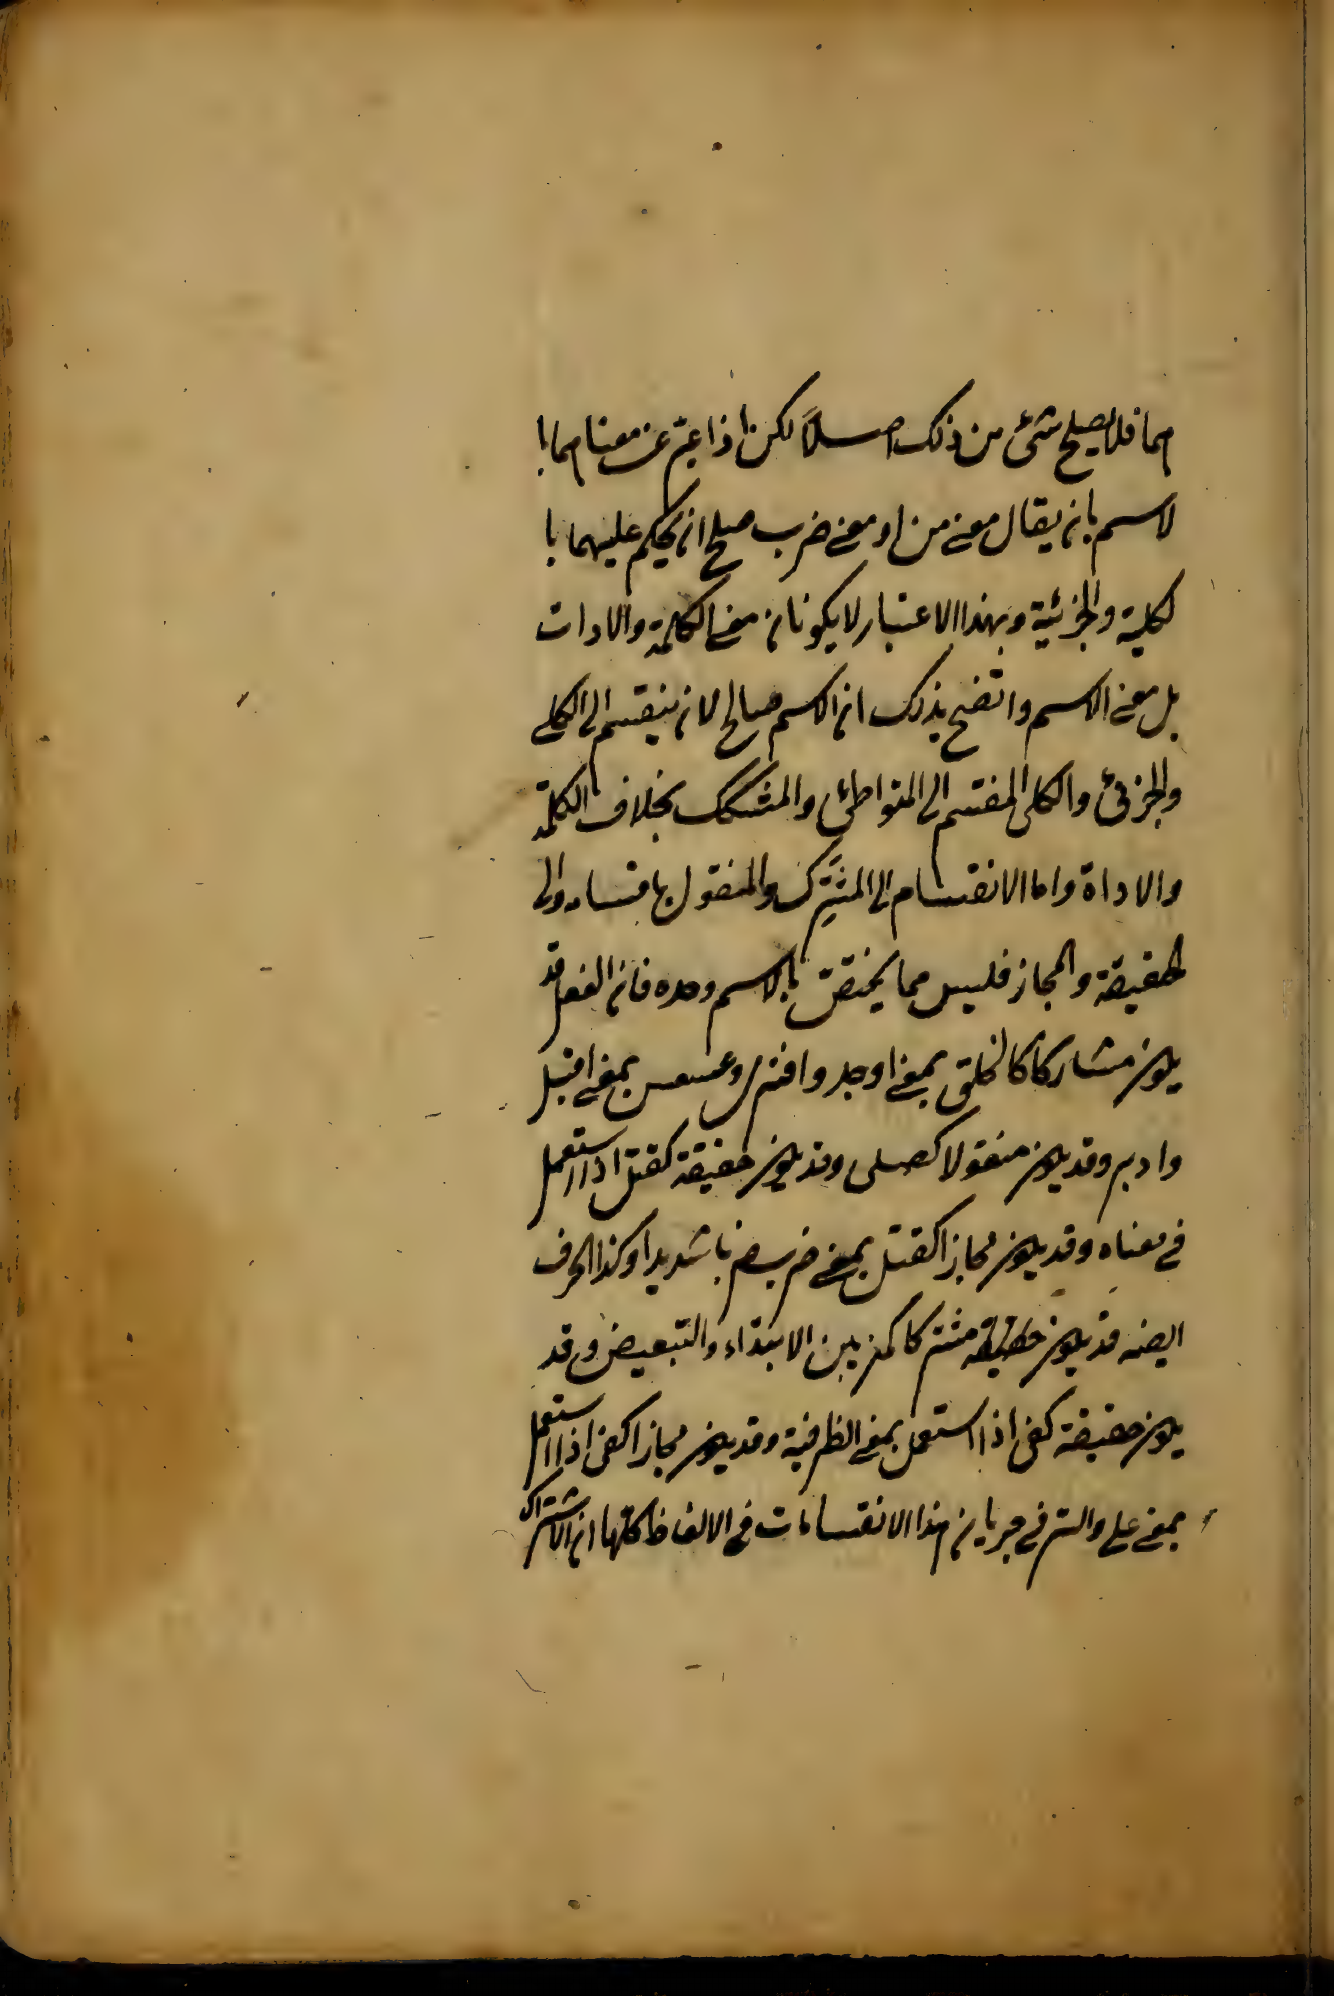 هما فلا يصلح شئ من ذلك اصلاً لكن اذا عبّر عن معناهما با
لاسم بان يقال معنى من او معنى ضرب صلح ان يحكم عليهما با
لكلية والجزئية وبهذا الاعتبار لا يكونان معنى الكلمة والادات
بل معنى الاسم واتضح بذلك ان الاسم صالح لان ينقسم الى الكلي
والجزئى والكلى المنقسم الى المتواطئ والمشكك بخلاف الكلمة
والاداة واما الانقسام الى المشترك والمنقول باقسامه والى
الحقيقة والمجاز فليس مما يختص بالاسم وحده فان الفعل قد
يكون مشاركا كالخلق بمعنى اوجد وافترى وعسعس بمعنى اقبل
وادبر وقد يكون منقولا كصلى وقد يكون حقيقة كقتل اذا استعمل
في معناه وقد يكون مجازا كقتل بمعنى ضرب ضربا شديدا وكذا الحرف
ايضه قد يكون مشتركا كمن بين الابتداء والتبعيض وقد
يكون حقيقة كفى اذا استعمل بمعنى الظرفية وقد يكون مجازا كفى اذا استعمل
بمعنى على والسر في جريان هذا الانقسامات في الالفاظ كلها ان الاشتراك